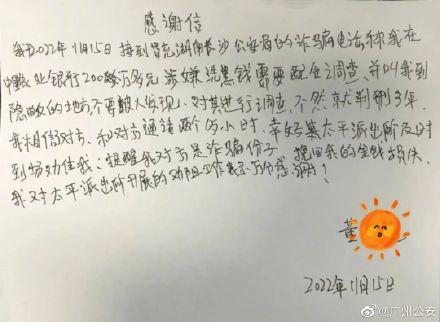 感谢信
我于2022年11月15日接到冒充湖南长沙公安局的诈骗电话称我在
中国农业银行200多万多元涉嫌洗黑钱需要配合调查，并叫我到
隐敝的地方不要被人发现，对其进行调查，不然就判刑3年。
我相信对方，和对方通话两个多小时，幸好太平派出所及时
到场劝住我，提醒我对方是诈骗份子，挽回我的金钱损失。
我对太平派出所开展的劝阻工作表示万分感谢！
董
2022年11月15日
@广州公安